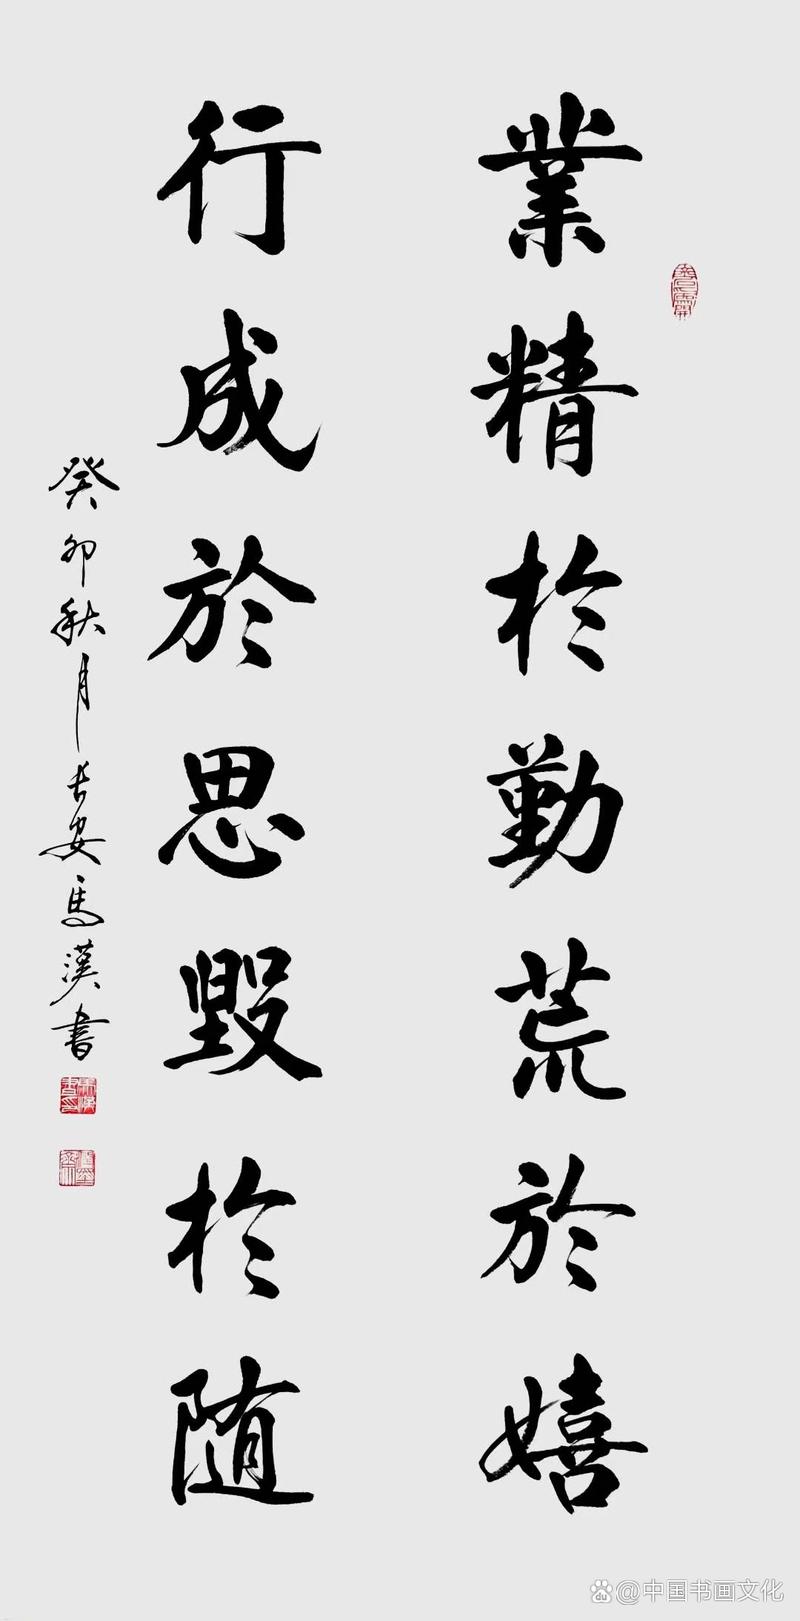 業精於勤荒於嬉
行成於思毀於随
癸卯秋月長安馬漢書
@中国书画文化